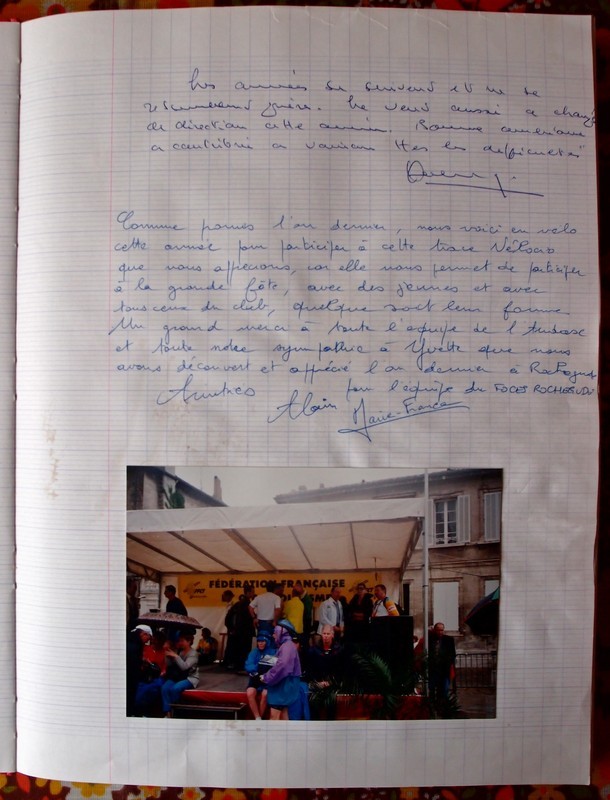 Les années se suivent et ne se
guère. Le vent aussi a changé
de direction cette année. Bonne ambiance
a contribué a vaincre ttes les difficultés
Comme promis l'an dernier, nous voici en vélo
cette année pour participer à cette trace Vélocio
que nous apprécions, car elle nous permet de participer
à la grande fête, avec des jeunes et avec
tous ceux du club, quelque soit leur forme
Un grand merci à toute l'équipe de l'
et toute notre sympathie à Yvette que nous
avons découvert et apprécié l'an dernier à
Amitiés pour l'équipe du FOCES ROCHES
Alain Marie-France
FÉDÉRATION FRANÇAISE